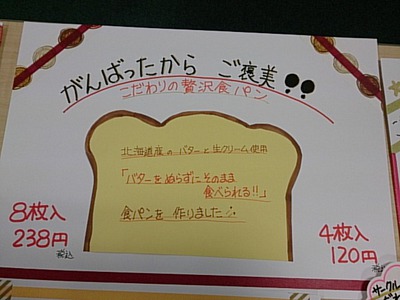 がんばったから ご褒美!!
こだわりの贅沢食パン
北海道産のバターと生クリーム使用
「バターをぬらずにそのまま
食べられる!!」
食パンを作りました
8枚入
238円
税込
4枚入
120円
税込
サークル